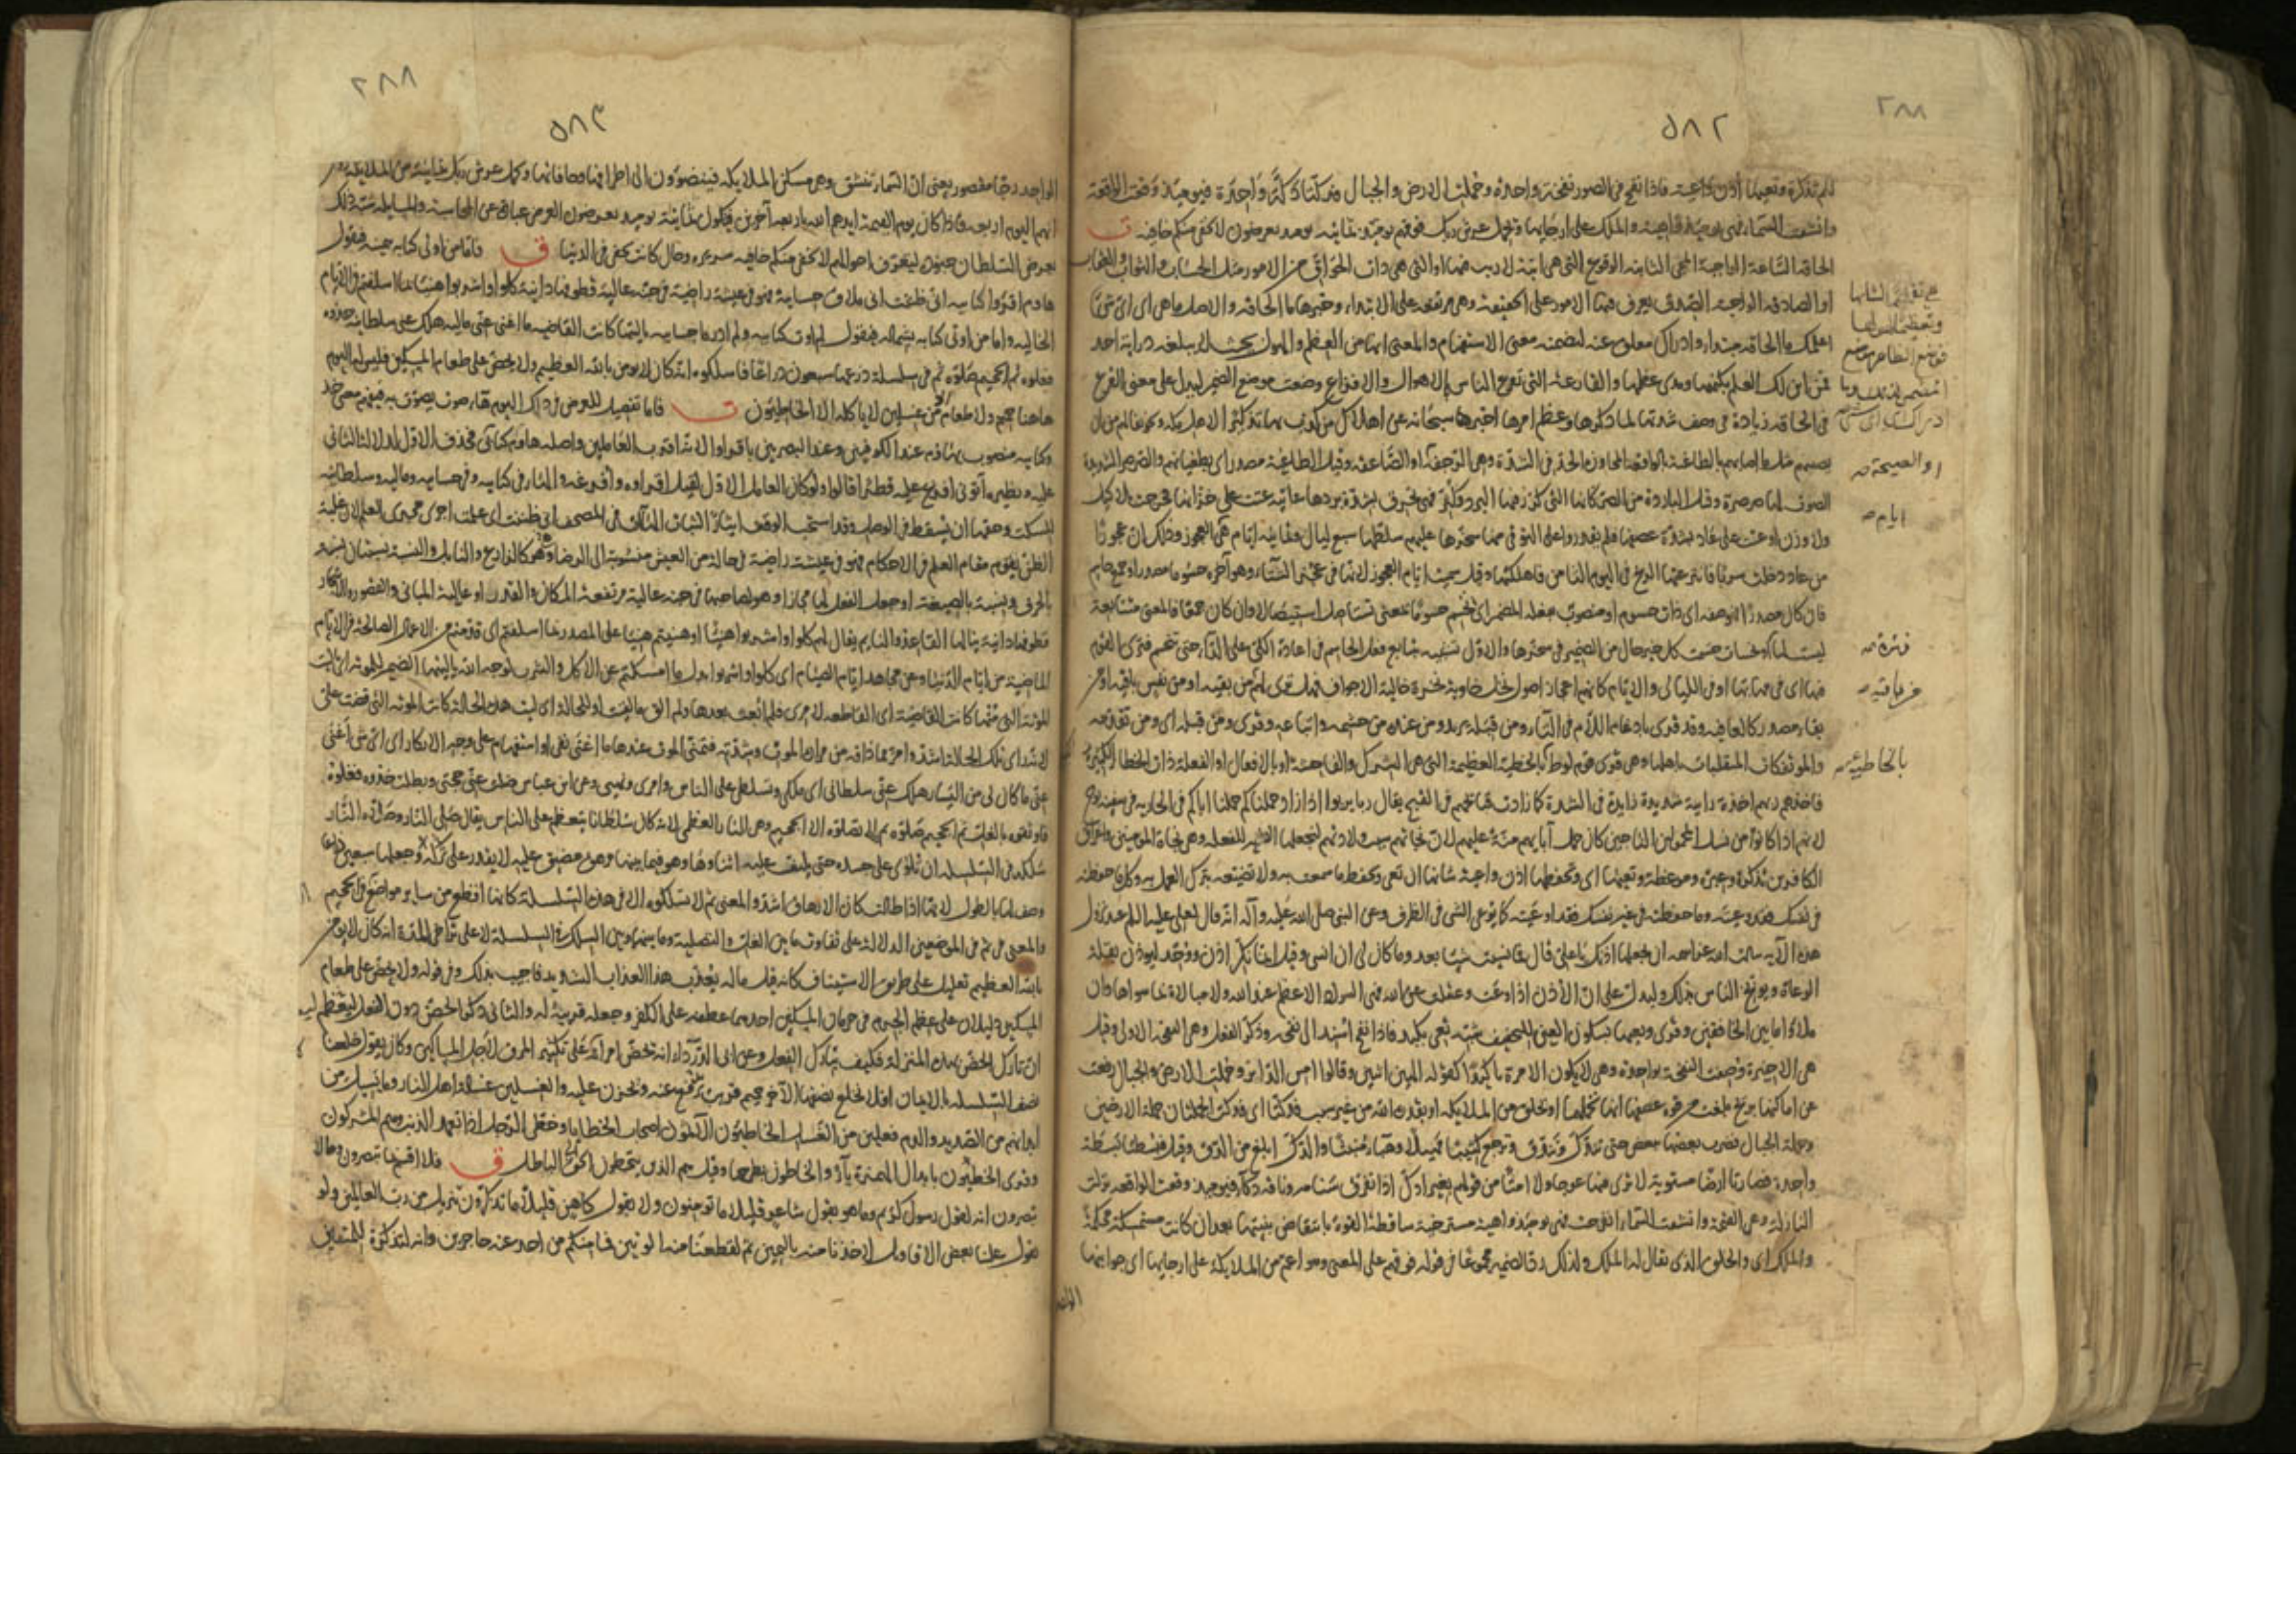 ٢٨٨
٥٨٢
لكم تذكرة وتعيها أذن واعية فاذا نفخ فى الصور نفخة واحدة وحملت الارض والجبال فدكتا دكة واحدة فيومئذ وقعت الواقعة
وانشقت السماء فهى يومئذ واهية والملك على ارجائها ويحمل عرش ربك فوقهم يومئذ ثمانية يومئذ تعرضون لا تخفى منكم خافية
الحاقة الساعة الواجبة المجى الثابتة الوقوع التى هى اتية لا ريب فيها او التى هى ذات الحواق من الامور مثل الحساب والثواب والعقاب
او الصادقة الواجبة الصدق يعرف فيها الامور على الحقيقة وهى مرتفعة على الابتداء وخبرها ما الحاقة والاصل ما هى اى اى شئ
اعلمك ما الحاقة مبتدا وادراك معلق عنه لتضمنه معنى الاستفهام والمعنى انها من العظم والهول بحيث لا يبلغه دراية احد
فمن اين لك العلم بكنهها ومدى عظمها والقارعة التى تقرع الناس بالاهوال والافزاع وضعت موضع الضمير ليدل على معنى القرع
فى الحاقة زيادة فى وصف شدتها لما ذكرها وعظم امرها اخبرها سبحانه عن اهلاك من كذب بها تذكيرا لاهل مكة وتخويفا لهم من ان
يصيبهم مثل ما اصابهم بالطاغية بالواقعة المجاوزة الحد فى الشدة وهى الرجفة او الصاعقة وقيل الطاغية مصدر اى بطغيانهم والصرصر الشديدة
الصوت لها صرصرة وقيل الباردة من الصر كانها التى كرر فيها البرد وكثر فهى تحرق بشدة بردها عاتية عتت على خزانها فخرجت بلا كيل
ولا وزن او عتت على عاد بشدة عصفها فلم يقدروا على التوقى منها سخرها عليهم سلطها سبع ليال وثمانية ايام هى العجوز وذلك ان عجوزا
من عاد دخلت سربا فانتزعتها الريح فى اليوم الثامن فاهلكتها وقيل سميت ايام العجوز لانها فى عجز الشتاء وهو آخره حسوما مصدر او جمع حاسم
فان كان مصدرا فوصف اى ذات حسوم او منصوب بفعله المضمر اى تحسم حسوما بمعنى تستاصل استيصالا وان كان جمعا فالمعنى متتابعة
فيها اى فى مهابها او فى الليالى والايام كانهم اعجاز اصول نخل خاوية نخرة خالية الاجواف فهل ترى لهم من بقية او من نفس باقية او من
بقاء مصدر كالعافية وقد قرى بادغام اللام فى التاء ومن قبله يريد ومن عنده من حشمه واتباعه وقرى ومن قبله اى ومن تقدمه
والموتفكات المنقلبات باهلها وهى قرى قوم لوط بالخطيئة العظيمة التى هى الشرك والفاحشة او بالافعال او الفعلة ذات الخطا الكبيرة
فاخذهم ربهم اخذة رابية شديدة زايدة فى الشدة كما زادت قبايحهم فى القبح يقال ربا يربوا اذا زاد حملناكم حملنا اباكم فى الجارية فى سفينة نوح
لانهم اذا كانوا من نسل المحمولين الناجين كان حمل آبايهم منة عليهم لان نجاتهم سبب ولادتهم لنجعلها الضمير للفعلة وهى نجاة المومنين واغراق
الكافرين تذكرة وعبرة وموعظة وتعيها اى وتحفظها اذن واعية شانها ان تعى وتحفظ ما سمعت به ولا تضيعه بترك العمل به وكل ما حفظته
فى نفسك فقد وعيته وما حفظته فى غير نفسك فقد اوعيته كما يوعى الشئ فى الظرف وعن النبى صلى الله عليه وآله انه قال لعلى عليه السلم عند نزول
هذه الآية سالت الله عز اسمه ان يجعلها اذنك يا على قال فما نسيت شيئا بعد وما كان لى ان انسى وقيل انما نكر اذن ووحد ليوذن بقلة
الوعاة ويوبخ الناس بذلك وليدل على ان الاذن اذا وعت وعقلت عن الله فهى السواد الاعظم عند الله ولا مبالاة بما سواها وان
ملاوا ما بين الخافقين وقرى وتعيها بسكون العين للتخفيف شبه تعى بكبد فاذا نفخ اسند الى نفخة وذكر الفعل وهى النفخة الاولى وقيل
هى الاخيرة وصفت النفخة بواحدة وهى لا يكون الا مرة تاكيدا كقوله الهين اثنين وقالوا امس الدابر وحملت الارض والجبال رفعت
عن اماكنها بريح بلغت من قوة عصفها انها تحملها او بخلق من الملايكة او بقدرة الله من غير سبب فدكتا اى فدكت الجملتان جملة الارضين
وجملة الجبال فضرب بعضها ببعض حتى تندق وترجع كثيبا مهيلا وهباء منبثا والدك ابلغ من الدق وقيل فبسطتا بسطة
واحدة فصارتا ارضا مستوية لا ترى فيها عوجا ولا امتا من قولهم بعير ادك اذا تفرق سنامه وناقة دكاء فيومئذ وقعت الواقعة نزلت
النازلة وهى القيمة وانشقت السماء انفرجت فهى يومئذ واهية مسترخية ساقطة القوة بانتقاض بنيتها بعد ان كانت مستمسكة محكمة
والملك اى والخلق الذى يقال له الملك ولذلك رد الضمير مجموعا فى قوله فوقهم على المعنى وهو اعم من الملايكة على ارجائها اى جوانبها
او الصيحة صح
ايام صح
بالخاطئة صح
٢٨٨
٥٨٣
الواحد رجا مقصور يعنى ان السماء تنشق وهى مسكن الملايكة فينضوون الى اطرافها وحافاتها ويحمل عرش ربك ثمانية من الملايكة
انهم اليوم اربعة فاذا كان يوم القيمة ايدهم الله باربعة آخرين فيكون ثمانية يومئذ تعرضون العرض عبارة عن المحاسبة والمسايلة شبه ذلك
بعرض السلطان جنوده ليتعرف احوالهم لا تخفى منكم خافية سريرة وحال كانت تخفى فى الدنيا ق فاما من اوتى كتابه بيمينه فيقول
هاوم اقرؤا كتابيه انى ظننت انى ملاق حسابيه فهو فى عيشة راضية فى جنة عالية قطوفها دانية كلوا واشربوا هنيئا بما اسلفتم فى الايام
الخالية واما من اوتى كتابه بشماله فيقول يا ليتنى لم اوت كتابيه ولم ادر ما حسابيه يا ليتها كانت القاضية ما اغنى عنى ماليه هلك عنى سلطانيه خذوه
فغلوه ثم الجحيم صلوه ثم فى سلسلة ذرعها سبعون ذراعا فاسلكوه انه كان لا يومن بالله العظيم ولا يحض على طعام المسكين فليس له اليوم
هاهنا حميم ولا طعام الا من غسلين لا ياكله الا الخاطئون ق فاما تفصيل للعرض فى ذلك اليوم هاء صوت يصوت به فيفهم معنى خذ
وكتابيه منصوب بهاوم عند الكوفيين وعند البصريين باقروا لانه اقرب العاملين واصله هاوم كتابى فحذف الاول لدلالة الثانى
عليه ونظيره آتونى افرغ عليه قطرا قالوا ولو كان العامل الاول لقيل اقروه وافرغه والهاء فى كتابيه وفى حسابيه وماليه وسلطانيه
للسكت وحقها ان تسقط فى الوصل وقد استحب الوقف ايثارا لثبات الهاآت فى المصحف انى ظننت اى علمت اجرى مجرى العلم لان غلبة
الظن تقوم مقام العلم فى الاحكام فهو فى عيشة راضية فى حالة من العيش منسوبة الى الرضا وهو كالدارع والنابل والنسبة نسبتان نسبة
بالحرف ونسبة بالصيغة او جعل الفعل لها مجازا وهو لصاحبها فى جنة عالية مرتفعة المكان والقدر او عالية المبانى والقصور والاشجار
قطوفها دانية ينالها القاعد والنايم يقال لهم كلوا واشربوا هنيئا او هنيتم هنيئا على المصدر بما اسلفتم اى قدمتم من الاعمال الصالحة فى الايام
الماضية من ايام الدنيا وعن مجاهد ايام الصيام اى كلوا واشربوا بدل ما امسكتم عن الاكل والشرب لوجه الله يا ليتها الضمير للموتة اى يا ليت
الموتة التى متها كانت القاضية اى القاطعة لامرى فلم ابعث بعدها ولم الق ما لقيت او للحالة اى ليت هذه الحالة كانت الموتة التى قضت على
لانه راى تلك الحالة اشد وامر مما ذاقه من مرارة الموت وشدته فتمنى الموت عندها ما اغنى نفى او استفهام على وجه الانكار اى اى شئ اغنى
عنى ما كان لى من اليسار هلك عنى سلطانى اى ملكى وتسلطى على الناس وامرى ونهيى وعن ابن عباس ضلت عنى حجتى وبطلت خذوه فغلوه
فاوثقوه بالغل ثم الجحيم صلوه ثم لا تصلوه الا الجحيم وهى النار العظمى لانه كان سلطانا يتعظم على الناس يقال صلى النار وصلاه النار
سلكه فى السلسلة ان تلوى على جسده حتى يلتف عليه اثناوها وهو فيما بينها مرهق مضيق عليه لا يقدر على حركة وجعلها سبعين ذراعا
وصف لها بالطول لانها اذا طالت كان الارهاق اشد والمعنى ثم لا تسلكوه الا فى هذه السلسلة كانها افظع من ساير مواضع فى الجحيم
والمعنى فى ثم فى الموضعين الدلالة على تفاوت ما بين الغل والتصلية وما بينهما وبين السلك فى السلسلة لا على تراخى المدة انه كان لا يومن
بالله العظيم تعليل على طريق الاستيناف كانه قيل ما له يعذب هذا العذاب الشديد فاجيب بذلك وفى قوله ولا يحض على طعام
المسكين دليلان على عظم الجرم فى حرمان المسكين احدهما عطفه على الكفر وجعله قرينة له والثانى ذكر الحض دون الفعل ليعلم
ان تارك الحض بهذه المنزلة فكيف بتارك الفعل وعن ابى الدرداء انه كان يحض امرأته على تكثير المرق لاجل المساكين وكان يقول خلعنا
نصف السلسلة بالايمان افلا نخلع نصفها الآخر حميم قريب يدفع عنه ويحزن عليه والغسلين غسالة اهل النار وما يسيل من
ابدانهم من الصديد والدم فعلين من الغسل الخاطئون الآثمون اصحاب الخطايا وخطى الرجل اذا تعمد الذنب وهم المشركون
وقرى الخاطيون بابدال الهمزة ياء والخاطون بطرحها وقيل هم الذين يتخطون الحق الى الباطل ق فلا اقسم بما تبصرون وما لا
تبصرون انه لقول رسول كريم وما هو بقول شاعر قليلا ما تومنون ولا بقول كاهن قليلا ما تذكرون تنزيل من رب العالمين ولو
تقول علينا بعض الاقاويل لاخذنا منه باليمين ثم لقطعنا منه الوتين فما منكم من احد عنه حاجزين وانه لتذكرة للمتقين